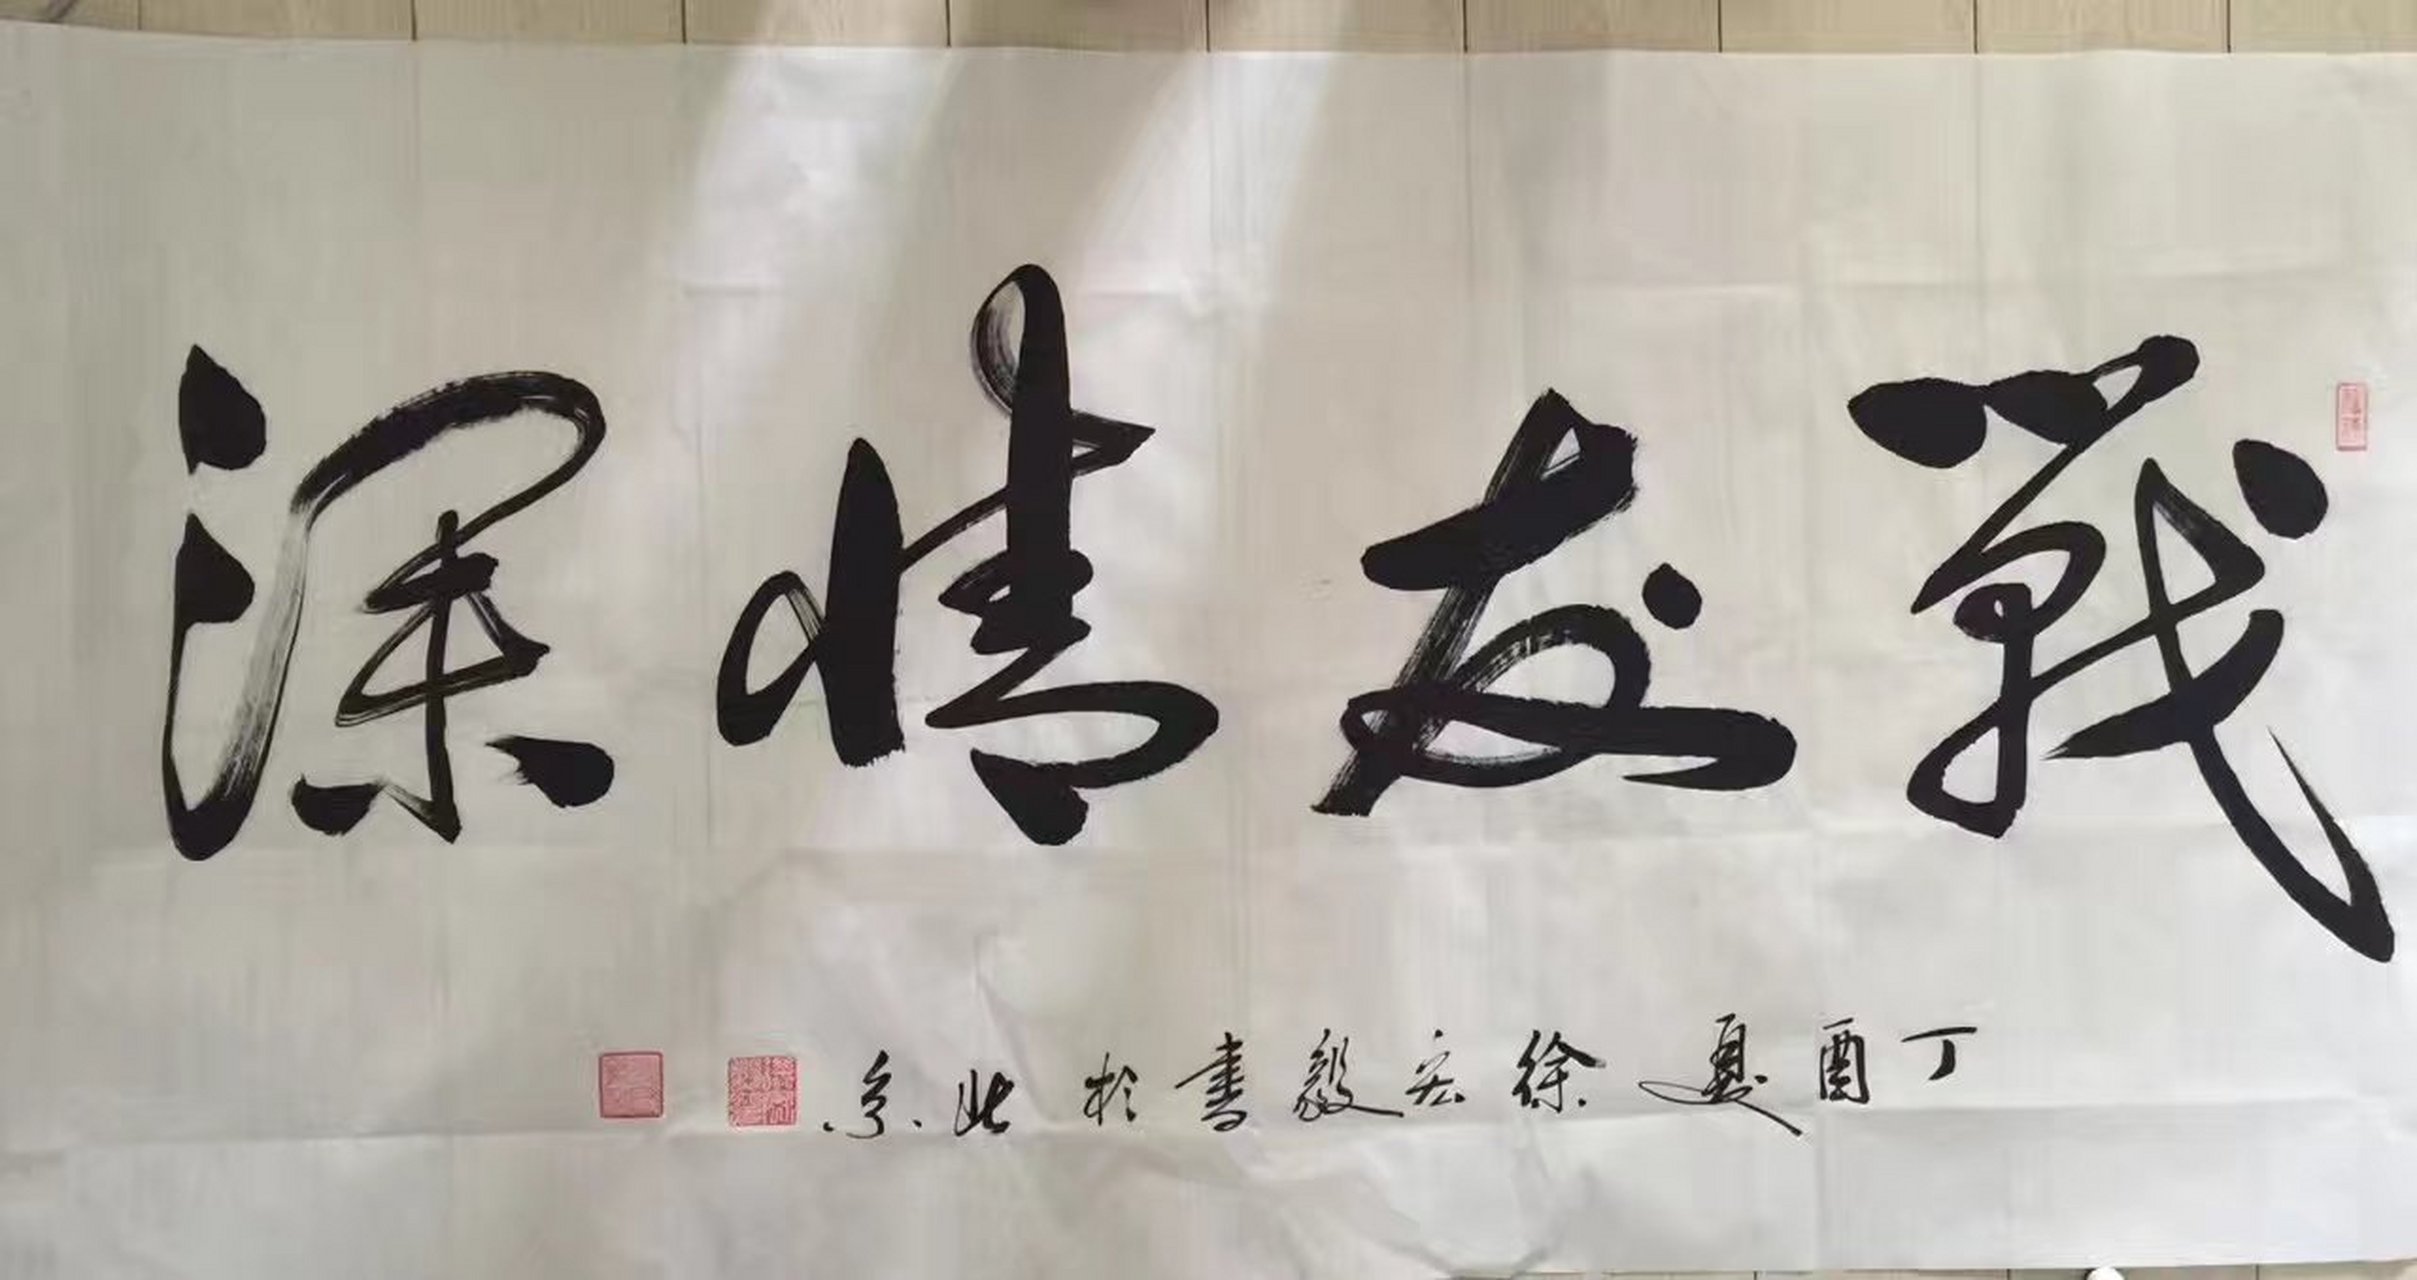 戰友情深
丁酉夏徐宏毅書於北京